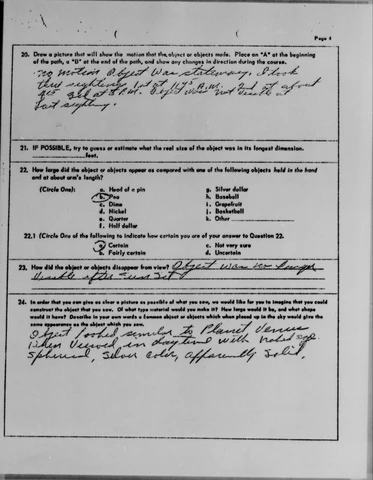 Page 4
20. Draw a picture that will show the motion that the object or objects made. Place an "A" at the beginning
of the path, a "B" at the end of the path, and show any changes in direction during the course.
no motion Object was stationary. I took
three sightings 1st at 1:45 P.M. 2nd at about
3rd at P.M. Object was not visible at
last sighting.
21. IF POSSIBLE, try to guess or estimate what the real size of the object was in its longest dimension.
feet.
22. How large did the object or objects appear as compared with one of the following objects held in the hand
and at about arm's length?
(Circle One):
a. Head of a pin
b. Pea
c. Dime
d. Nickel
e. Quarter
f. Half dollar
g. Silver dollar
h. Baseball
i. Grapefruit
j. Basketball
k. Other
22.1 (Circle One of the following to indicate how certain you are of your answer to Question 22.
a. Certain
b. Fairly certain
c. Not very sure
d. Uncertain
23. How did the object or objects disappear from view? Object was no longer
visible after Sun Set
24. In order that you can give as clear a picture as possible of what you saw, we would like for you to imagine that you could
construct the object that you saw. Of what type material would you make it? How large would it be, and what shape
would it have? Describe in your own words a common object or objects which when placed up in the sky would give the
same appearance as the object which you saw.
Object looked similar to Planet Venus
When Viewed in daytime with naked eye.
Spherical, Silver color, apparently Solid.